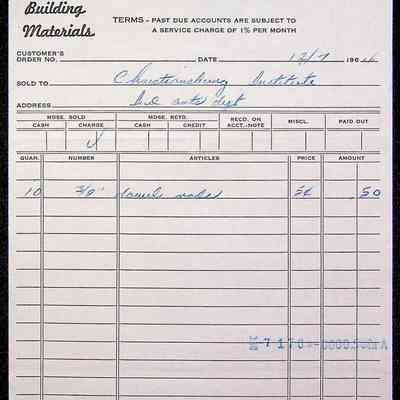 Building
Materials
TERMS - PAST DUE ACCOUNTS ARE SUBJECT TO
A SERVICE CHARGE OF 1% PER MONTH
CUSTOMER'S
ORDER NO. DATE 12/7 196
SOLD TO Institute
ADDRESS Ind arts dept
MDSE. SOLD MDSE. RETD. REC'D. ON ACCT.-NOTE MISCL. PAID OUT
CASH CHARGE CASH CREDIT
QUAN. NUMBER ARTICLES PRICE AMOUNT
10 3/8" dowel rods 5¢ .50